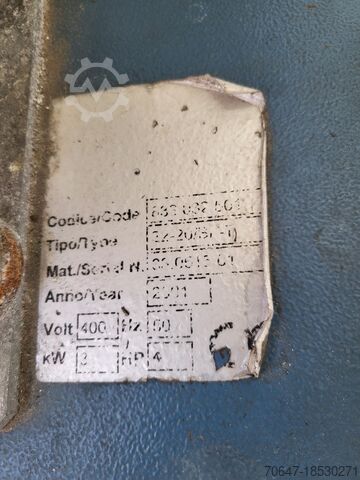 Codice/Code
Tipo/Type
Mat./Serial N.
Anno/Year 2001
Volt 400 Hz 50
kW 3 HP 4
70647-18530271